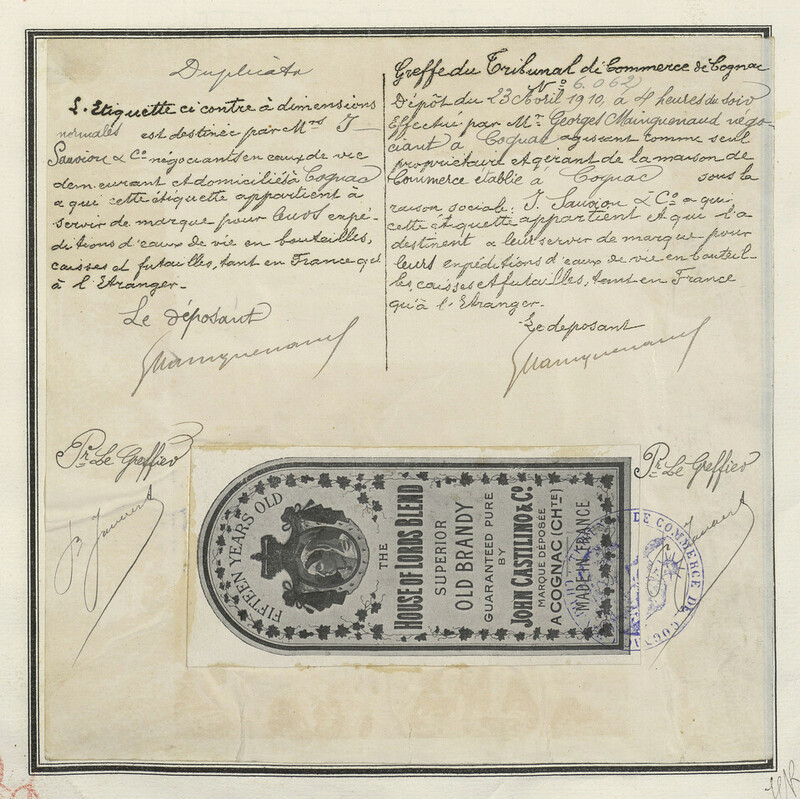 Duplicata
L'Etiquette ci contre à dimensions
normales est destinée par Mrs J
Sauvion & Co négociants en eaux de vie
demeurant et domiciliés à Cognac
a qui cette étiquette appartient à
servir de marque pour leurs expé-
ditions d'eaux de vie en bouteilles,
caisses et futailles, tant en France qu
à l'Etranger.
Le déposant
GMainguenaud
Greffe du Tribunal de Commerce de Cognac
No 6.062
Dépôt du 23 Avril 1910, à 4 heures du soir
Effectué par Mr Georges Mainguenaud négo-
ciant à Cognac agissant comme seul
propriétaire et gérant de la maison de
Commerce établie à Cognac sous la
raison sociale: J. Sauvion & Co a qui
cette étiquette appartient et qui l'a
destinent a leur servir de marque pour
leurs expéditions d'eaux de vie en bouteil-
les, caisses et futailles, tant en France
qu'à l'Etranger.
Le deposant
GMainguenaud
Pr Le Greffier
Pr Le Greffier
FIFTEEN YEARS OLD
THE
HOUSE OF LORDS BLEND
SUPERIOR
OLD BRANDY
GUARANTEED PURE
BY
JOHN CASTILINO & Co
MARQUE DÉPOSÉE
A COGNAC (CHTE)
MADE IN FRANCE
DE COMMERCE DE COGNAC